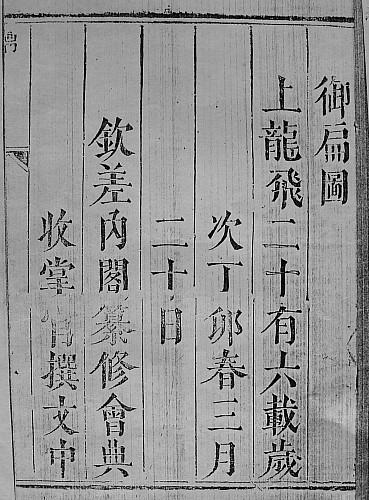 御扁圖
上龍飛二十有六載歲
次丁卯春三月
二十日
欽差內閣纂修會典
收掌官撰文中